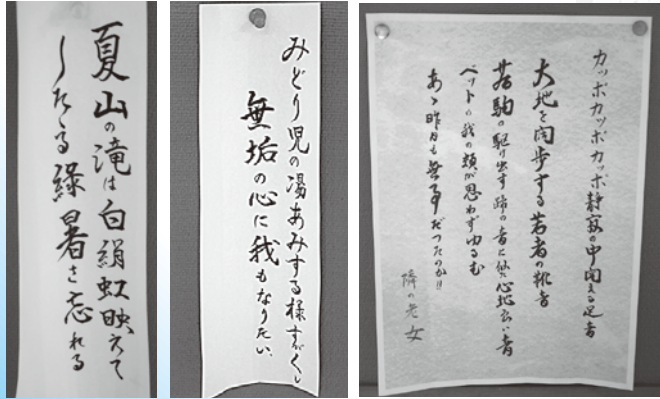 夏山の滝は白絹虹映えて
したゝる緑暑さ忘れる
みどり児の湯あみする様すがくし
無垢の心に我もなりたい
カッポカッポカッポ静寂の中聞える足音
大地を闊歩する若者の靴音
若駒の駆け出す蹄の音に似た心地良い音
ベットの我の頬が思わずゆるむ
あゝ昨日も無事だったのか!!
隣の老女